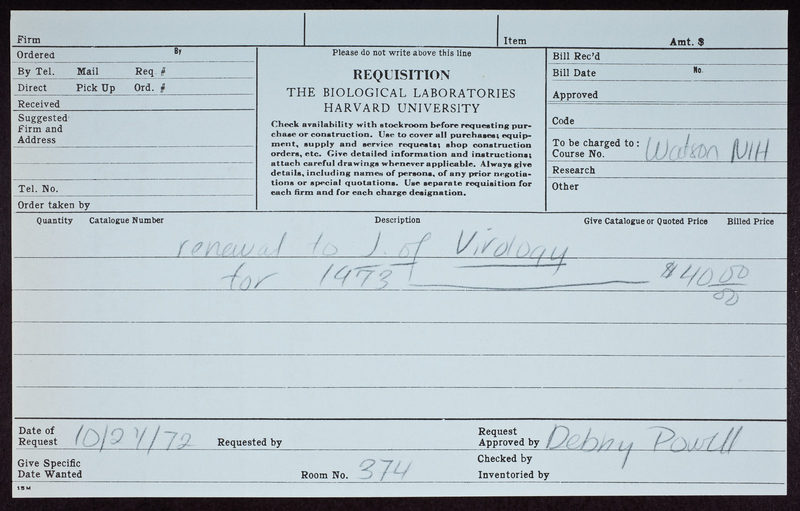 Firm
Item
Amt. $
Ordered
By
By Tel. Mail Req #
Direct Pick Up Ord. #
Received
Suggested
Firm and
Address
Tel. No.
Order taken by
Please do not write above this line
REQUISITION
THE BIOLOGICAL LABORATORIES
HARVARD UNIVERSITY
Check availability with stockroom before requesting pur-
chase or construction. Use to cover all purchases; equip-
ment, supply and service requests; shop construction
orders, etc. Give detailed information and instructions;
attach careful drawings whenever applicable. Always give
details, including names of persons, of any prior negotia-
tions or special quotations. Use separate requisition for
each firm and for each charge designation.
Bill Rec'd
Bill Date No.
Approved
Code
To be charged to:
Course No. Watson NIH
Research
Other
Quantity Catalogue Number Description Give Catalogue or Quoted Price Billed Price
renewal to J. of Virology
for 1973 $40 00
00
Date of
Request 10/24/72 Requested by
Request
Approved by Debny Powell
Give Specific
Date Wanted
Room No. 374
Checked by
Inventoried by
15M